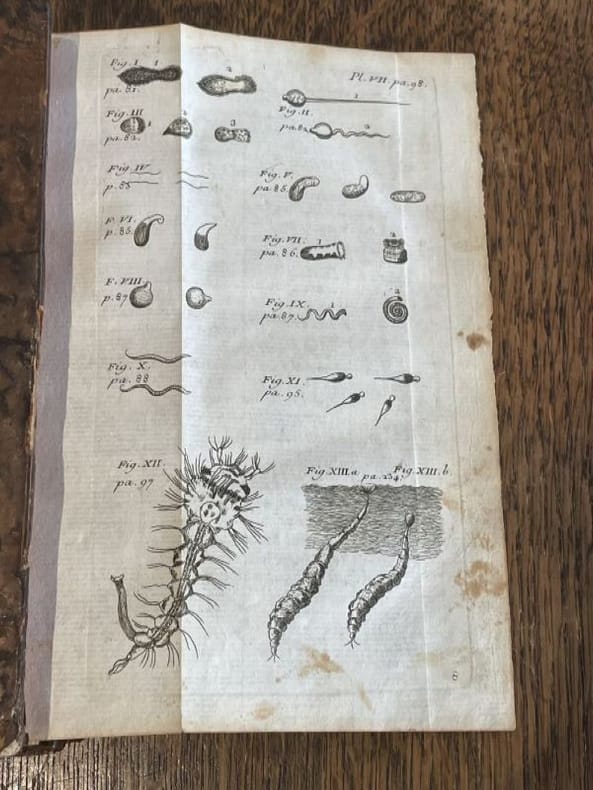 Fig. I. 1
2
Pl. VII. pa. 98.
pa. 81.
1
Fig. II.
pa. 82.
2
Fig. III
1
2
3
pa. 82.
Fig. IV
p. 85
Fig. V.
pa. 85.
F. VI.
p. 85.
Fig. VII.
1
2
pa. 86.
F. VIII
p. 87
Fig. IX.
1
2
pa. 87.
Fig. X.
pa. 88
Fig. XI.
pa. 95.
Fig. XII.
pa. 97
Fig. XIII. a
pa. 234
Fig. XIII. b.
8